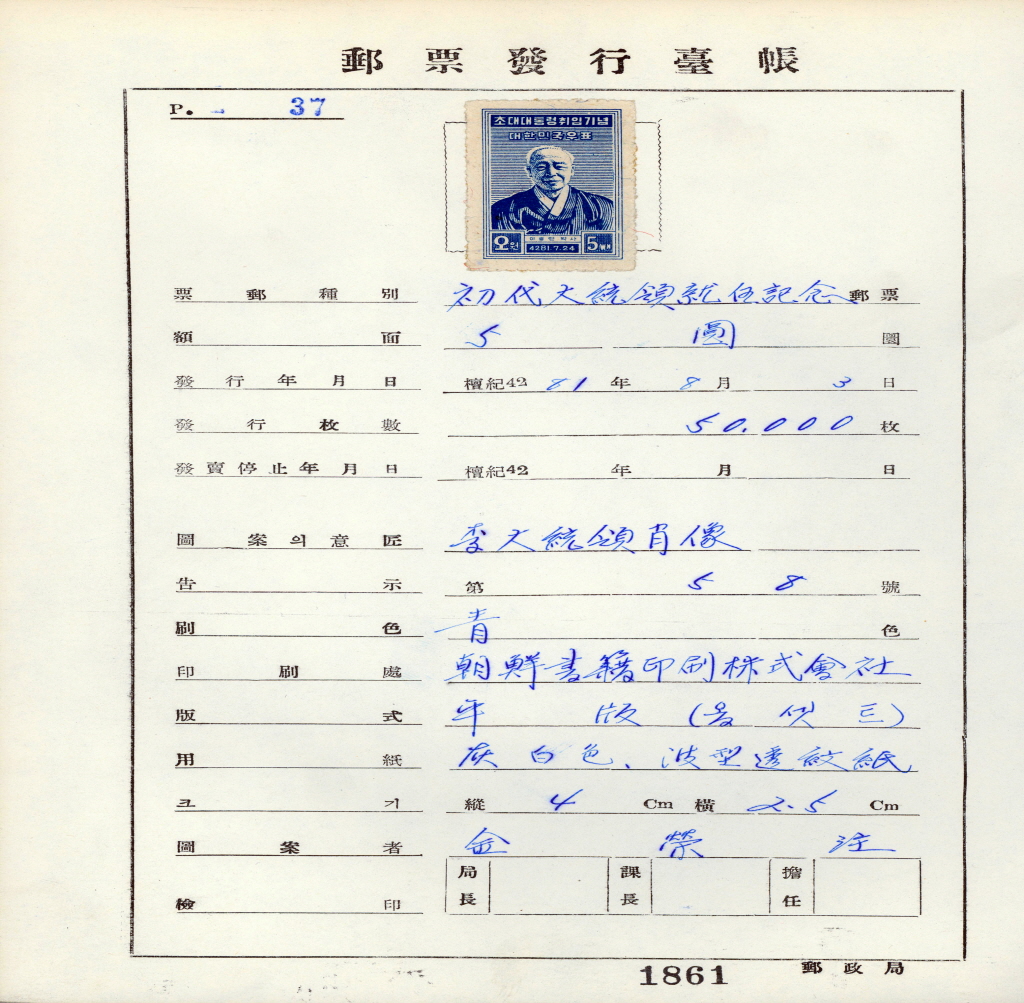 郵票發行臺帳
P. 37
초대대통령취임기념
대한민국우표
오원
이승만박사
4281.7.24
5WN
票郵種別 初代大統領就任記念郵票
額面 5 圓 圜
發行年月日 檀紀4281年8月3日
發行枚數 50.000枚
發賣停止年月日 檀紀42 年 月 日
圖案의意匠 李大統領肖像
告示 第58號
刷色 青色
印刷處 朝鮮書籍印刷株式會社
版式 平版(옵셋트)
用紙 灰白色、波型透紋紙
크기 縱 4 Cm 橫 2.5 Cm
圖案者 金榮注
檢印 局長 課長 擔任
1861 郵政局